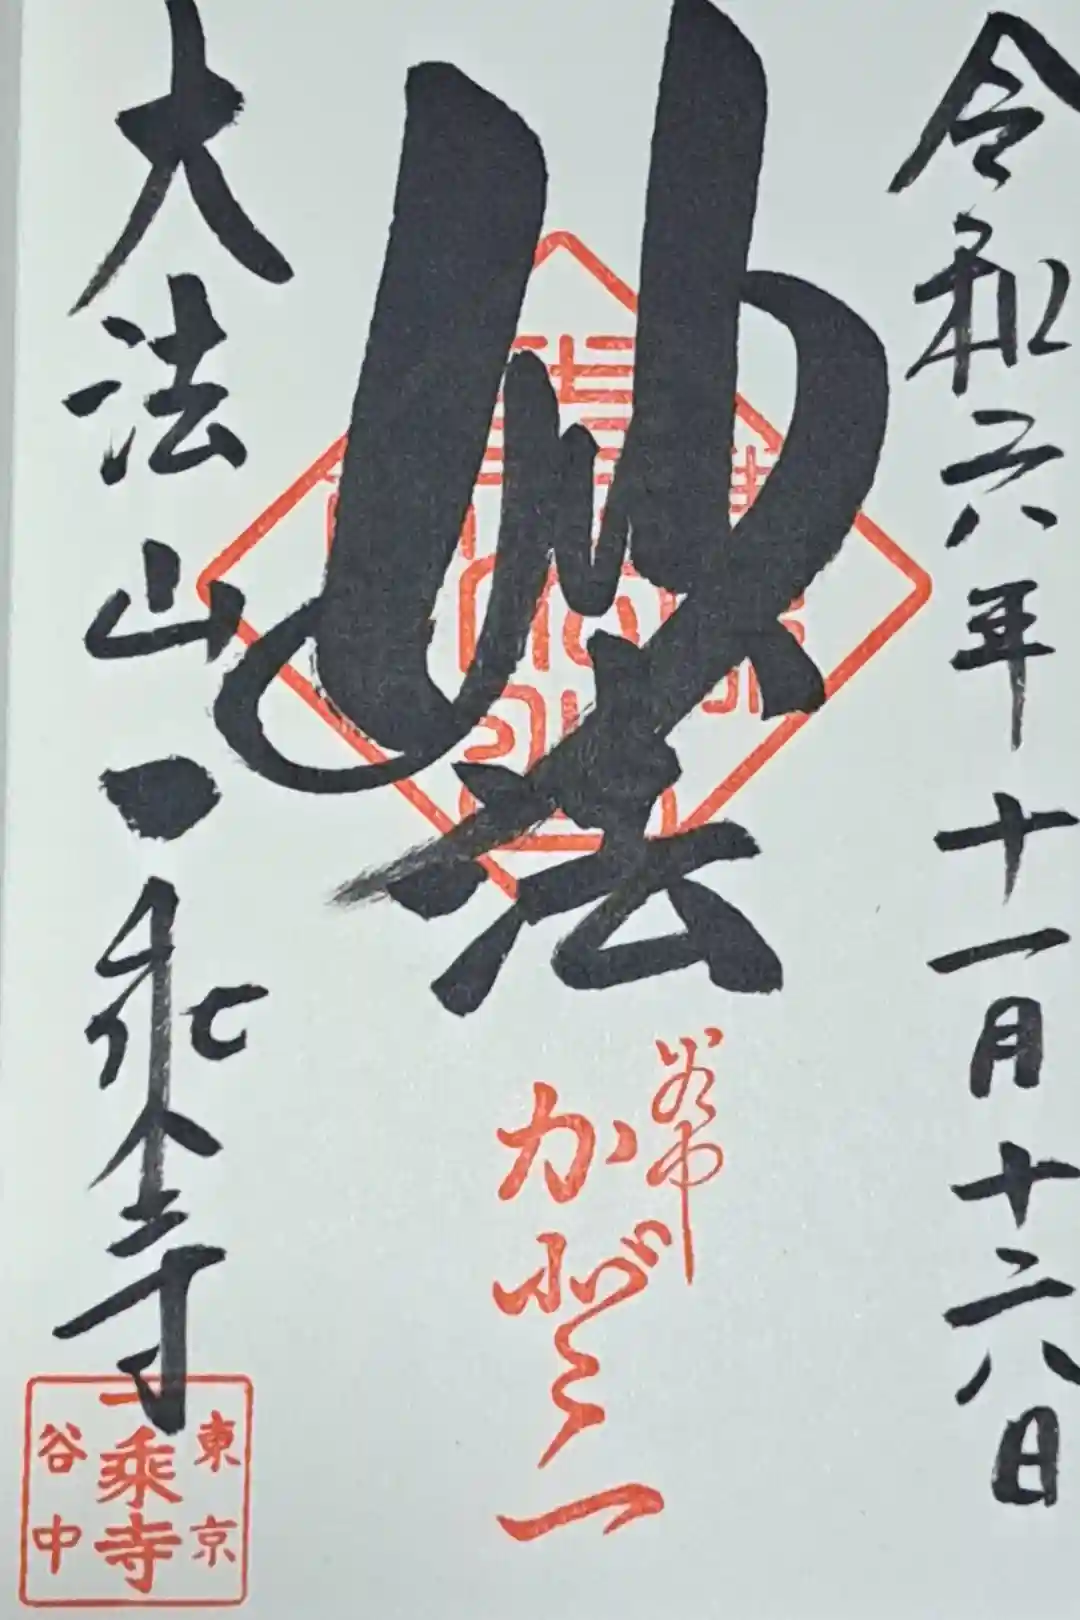 令和六年十一月十六日
妙法
谷中
大法山一乘寺
東京
一乗寺
谷中